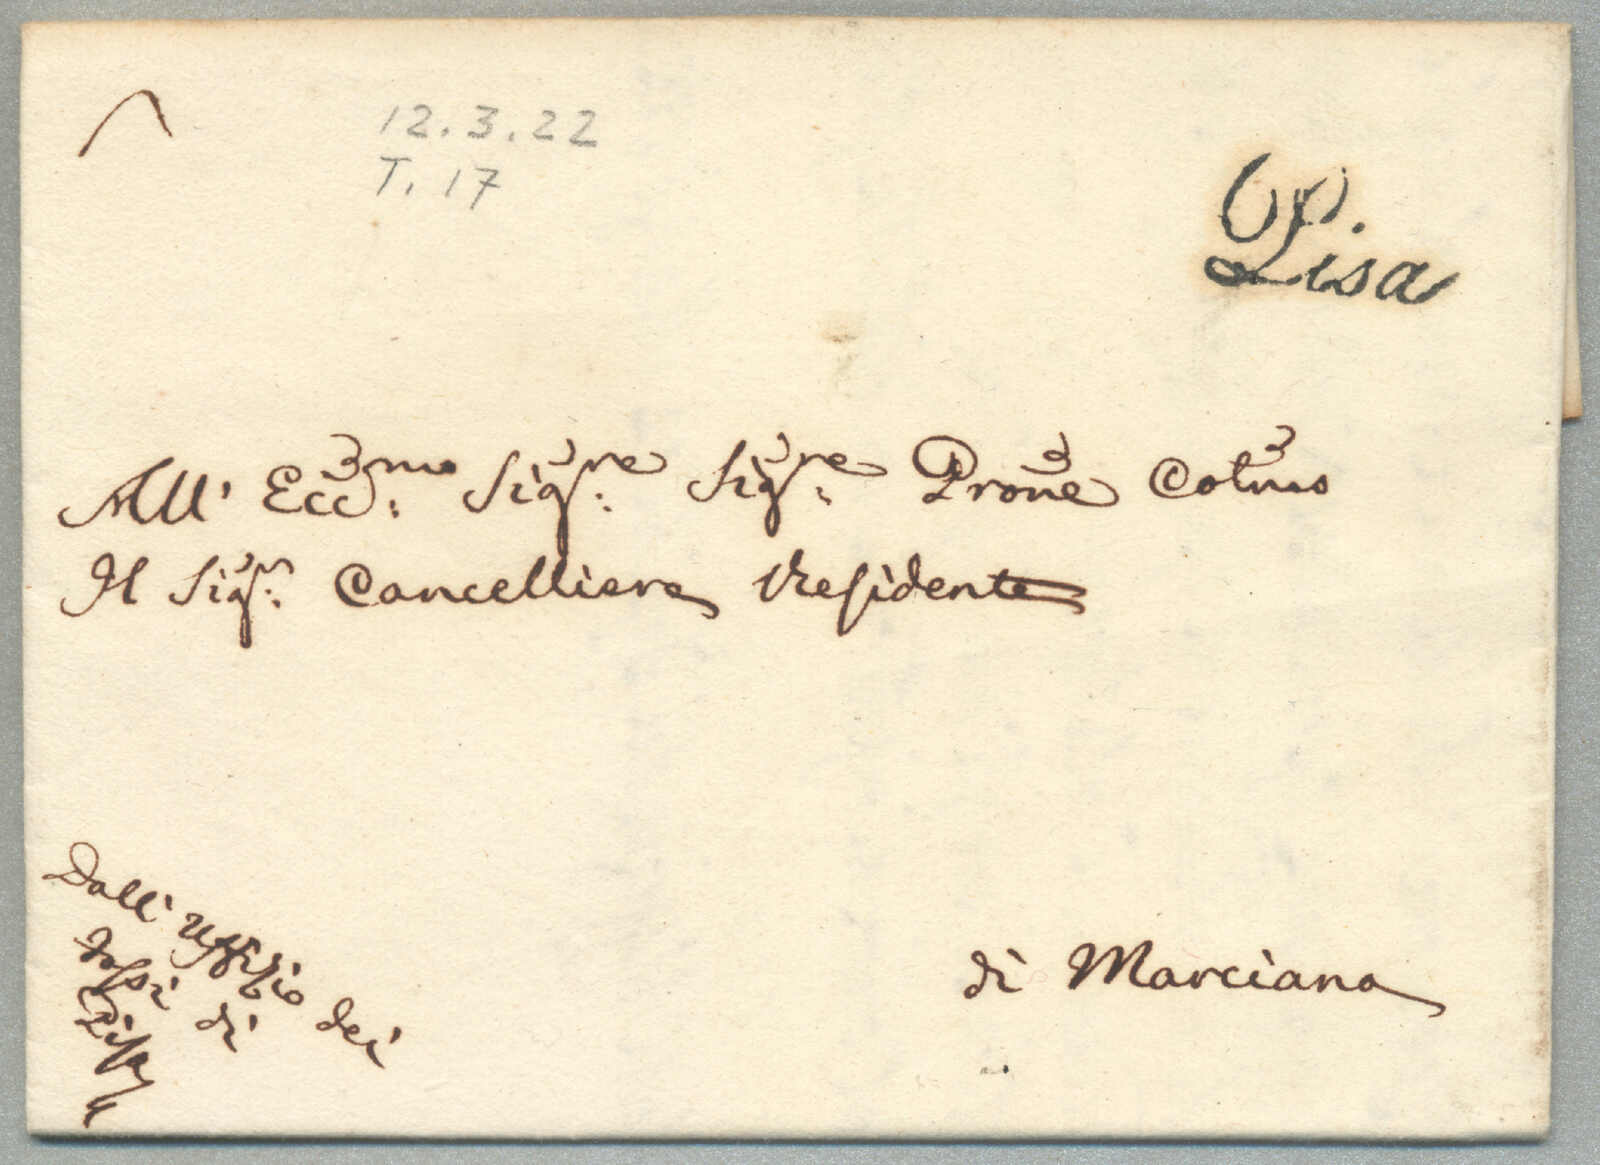 12.3.22
T. 17
Pisa
All' Ecc.mo Sig.re Sig.re Prone Colmo
Il Sig.r Cancelliere Residente
di Marciana
Dall' Uffizio dei
Fossi di
Pisa